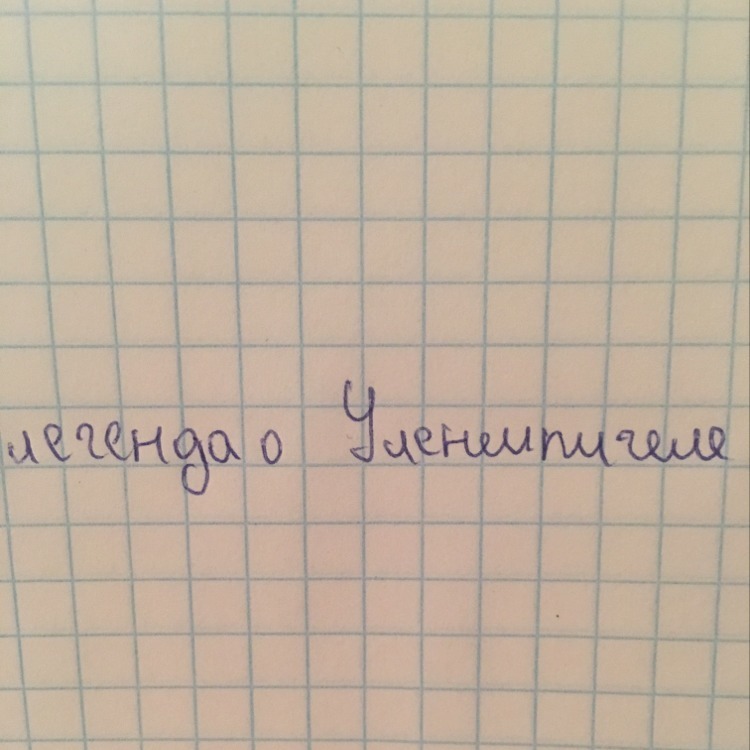 легенда о Уленшпигеле